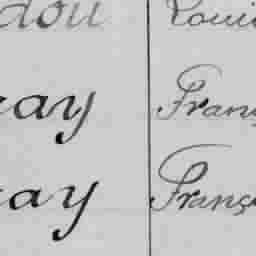 dou Loui
ray Franç
ay Franç